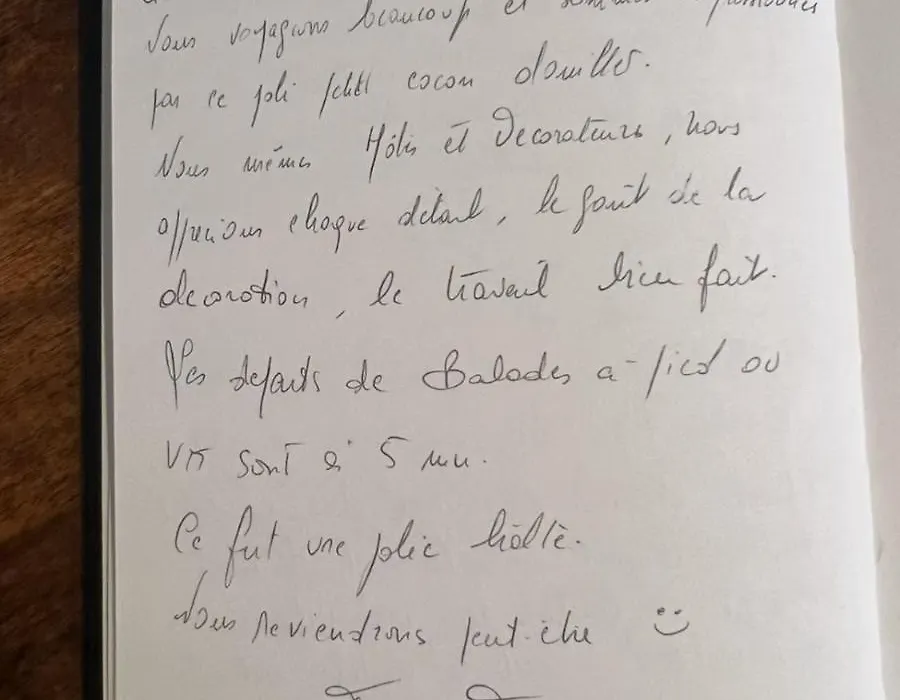 Nous voyageons beaucoup et sommes
par ce joli petit cocon douillet.
Nous mêmes Hôtes et Decorateurs, nous
apprecions chaque détail, le goût de la
decoration, le travail bien fait.
Les departs de Balades a-pied ou
VTT sont à 5 mn.
Ce fut une jolie halte.
Nous reviendrons peut-être ☺